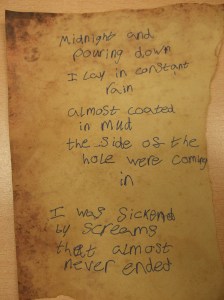 Midnight and
pouring down
I Lay in constant
rain
almost coated
in mud
the side of the
hole were coming
in
I was sickend
by screams
that almost
never ended